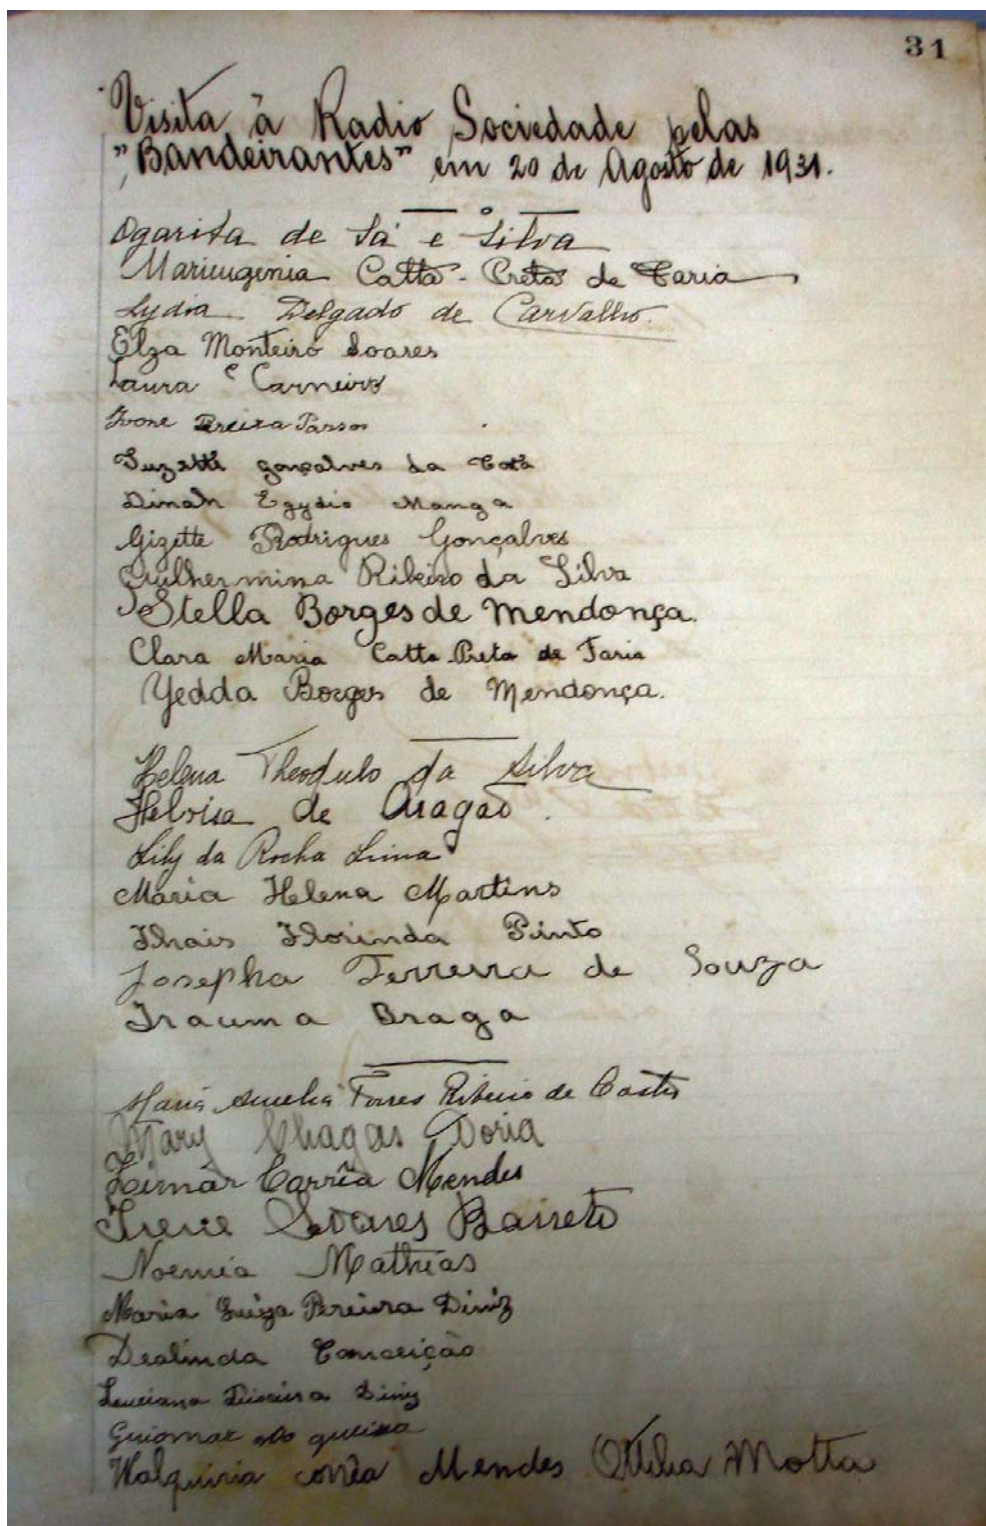 31
Visita à Radio Sociedade pelas
"Bandeirantes" em 20 de Agosto de 1931.
Ogarita de Sá e Silva
Marieugenia Catta-Preta de Faria
Lydia Delgado de Carvalho.
Elza Monteiro Soares
Laura C Carneiro
Ivone Pereira Passos
Suzette gonçalves da
Dinah Egydio Manga
Gizette Rodrigues Gonçalves
Guilhermina Ribeiro da Silva
Stella Borges de Mendonça.
Clara Maria Catta-Preta de Faria
Yedda Borges de Mendonça.
Helena Theodulo da Silva
Heloisa de Aragão.
Lily da Rocha Lima
Maria Helena Martins
Thais Florinda Pinto
Josepha Ferreira de Souza
Irauma Braga
Maria Amelia Torres Ribeiro de Castro
Mary Chagas Doria
Corrêa Mendes
Irene Soares Barreto
Noemia Mathias
Maria Luiza Pereira Diniz
Dealinda Conceição
Luciana Diniz
Guiomar
Walquiria Corrêa Mendes Ottilia Motta